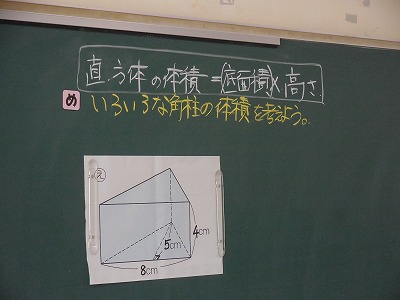 直方体の体積=底面積×高さ
め いろいろな角柱の体積を考えよう。
え
5cm
4cm
8cm